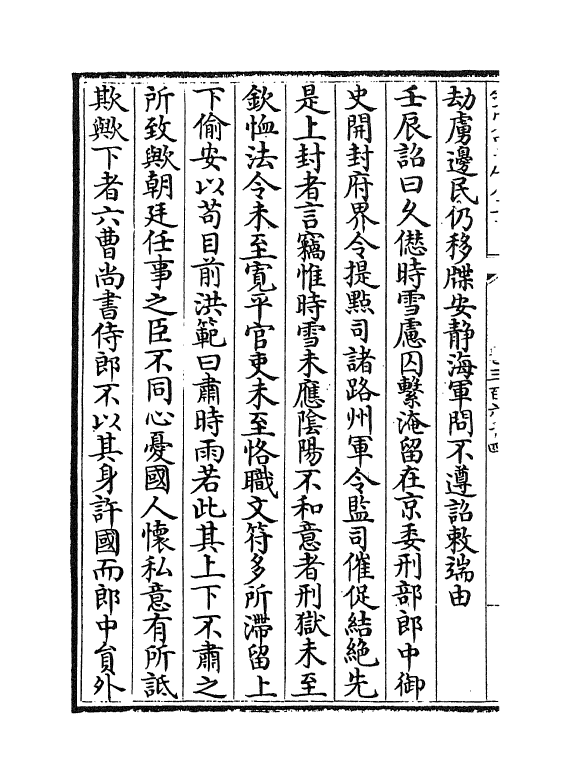 劫虜邊民仍移牒安静海軍問不遵詔敕端由
壬辰詔曰久愆時雪慮囚繫淹留在京委刑部郎中御
史開封府界令提點司諸路州軍令監司催促結絶先
是上封者言竊惟時雪未應陰陽不和意者刑獄未至
欽恤法令未至寛平官吏未至恪職文符多所滯留上
下偷安以苟目前洪範曰肅時雨若此其上下不肅之
所致歟朝廷任事之臣不同心憂國人懐私意有所詆
欺歟下者六曹尚書侍郎不以其身許國而郎中貟外